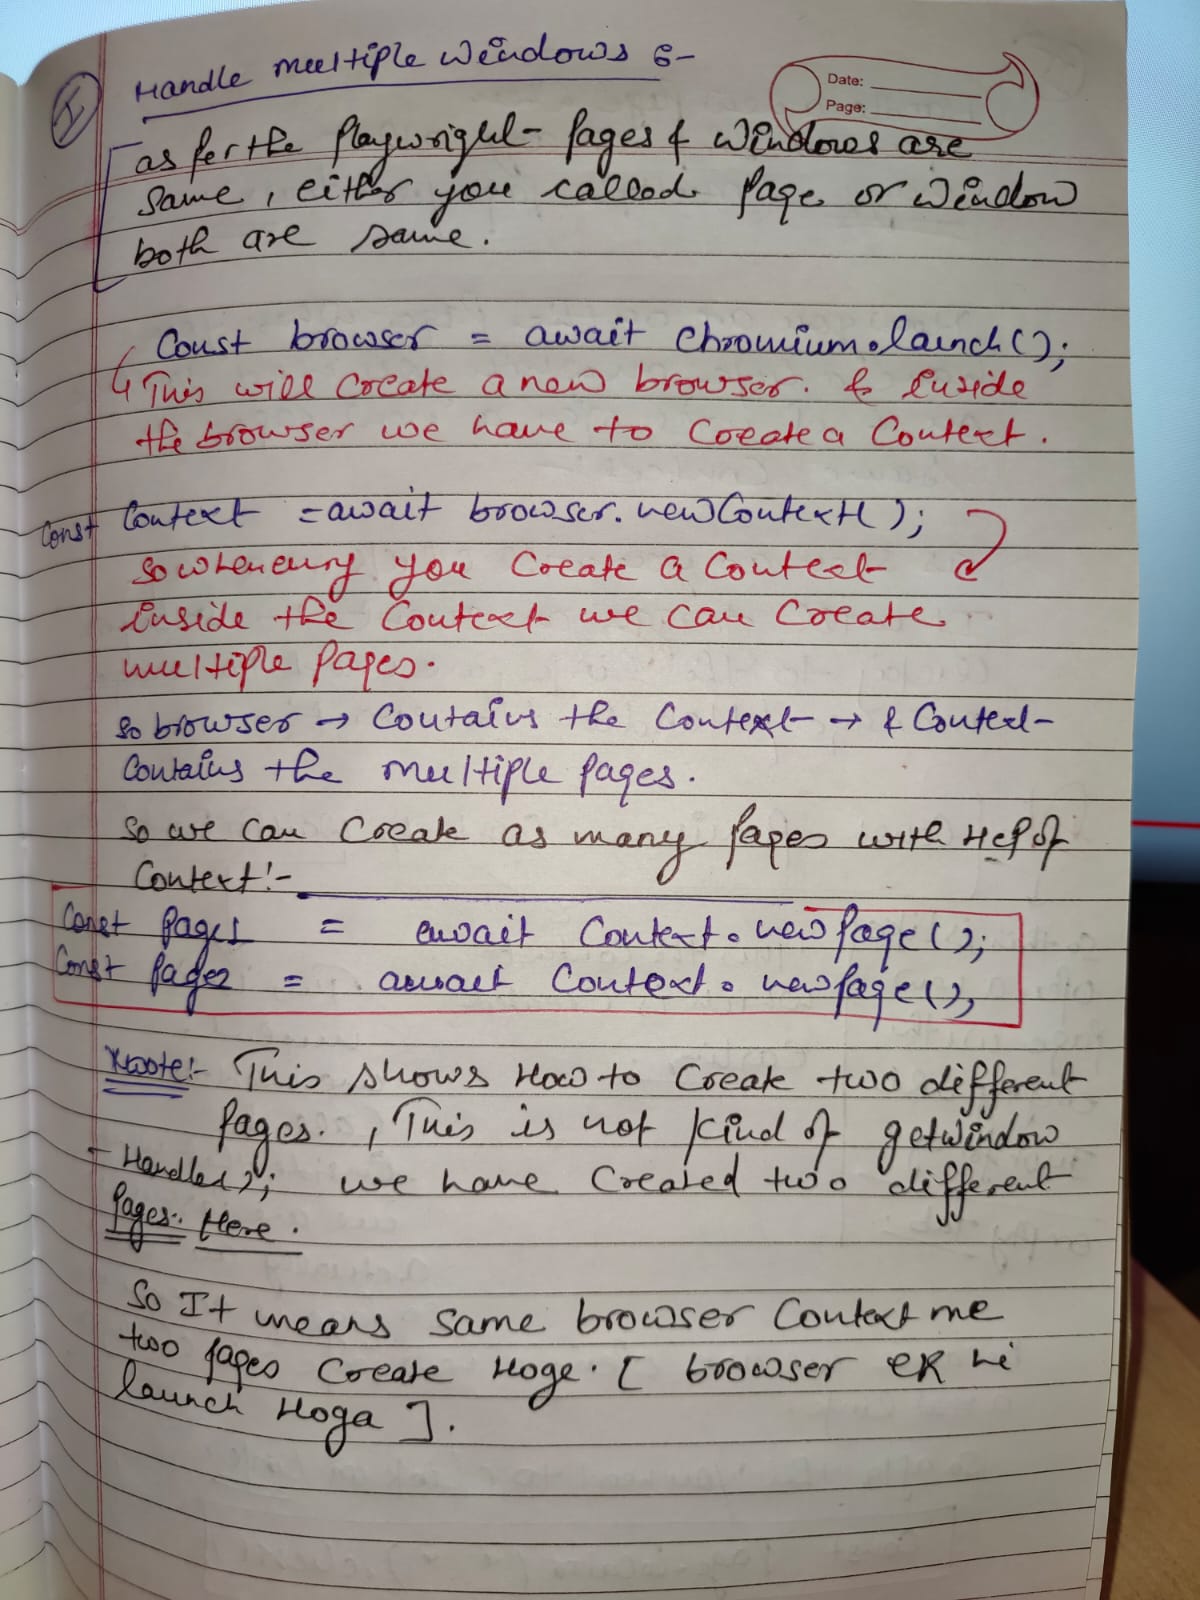 I
Handle multiple windows :-
Date:
Page:
as per the Playwright - Pages & windows are
same, either you called page or window
both are same.
Const browser = await chromium.launch();
This will create a new browser. & inside
the browser we have to create a context.
Const Context = await browser.newContext();
So whenever you create a context
inside the context we can create
multiple pages.
So browser → contains the context → & context
contains the multiple pages.
So we can create as many pages with Help of
Context:-
Const page1 = await Context.newPage();
Const page2 = await Context.newPage();
Note:- This shows How to create two different
pages. , This is not kind of getwindow
- Handles(); we have created two different
pages.. Here.
So It means same browser context me
two pages create Hoge. [ browser ek hi
launch Hoga ].